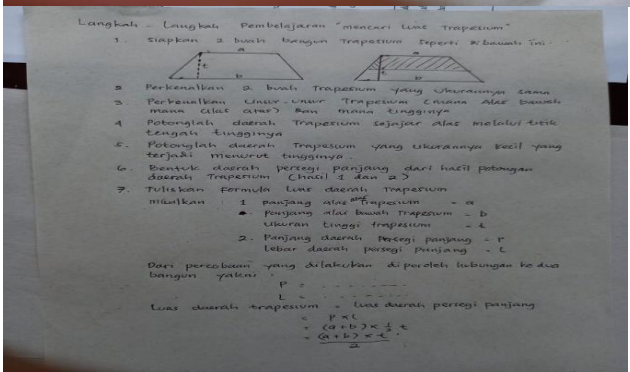 Langkah - Langkah Pembelajaran "mencari Luas Trapesium"
1. Siapkan 2 buah bangun Trapesium seperti dibawah ini.
a a
t t
b b
2 Perkenalkan 2 buah Trapesium yang ukurannya sama
3 Perkenalkan Unsur-unsur Trapesium (mana alas bawah
mana (alas atas) dan mana tingginya
4 Potonglah daerah Trapesium sejajar alas melalui titik
tengah tingginya
5. Potonglah daerah Trapesium yang ukurannya kecil yang
terjadi menurut tingginya.
6. Bentuk daerah persegi panjang dari hasil potongan
daerah Trapesium (hasil 1 dan 2)
7. Tuliskan Formula luas daerah Trapesium
misalkan : 1 panjang alas atas Trapesium = a
Panjang alas bawah Trapesium = b
Ukuran tinggi trapesium = t
2. Panjang daerah persegi panjang = P
Lebar daerah persegi panjang = L
Dari percobaan yang dilakukan diperoleh hubungan ke dua
bangun yakni :
P = ..........
L = ..........
Luas daerah trapesium = luas daerah persegi panjang
= P x L
= (a + b) x 1/2 t
= (a + b) x t
2